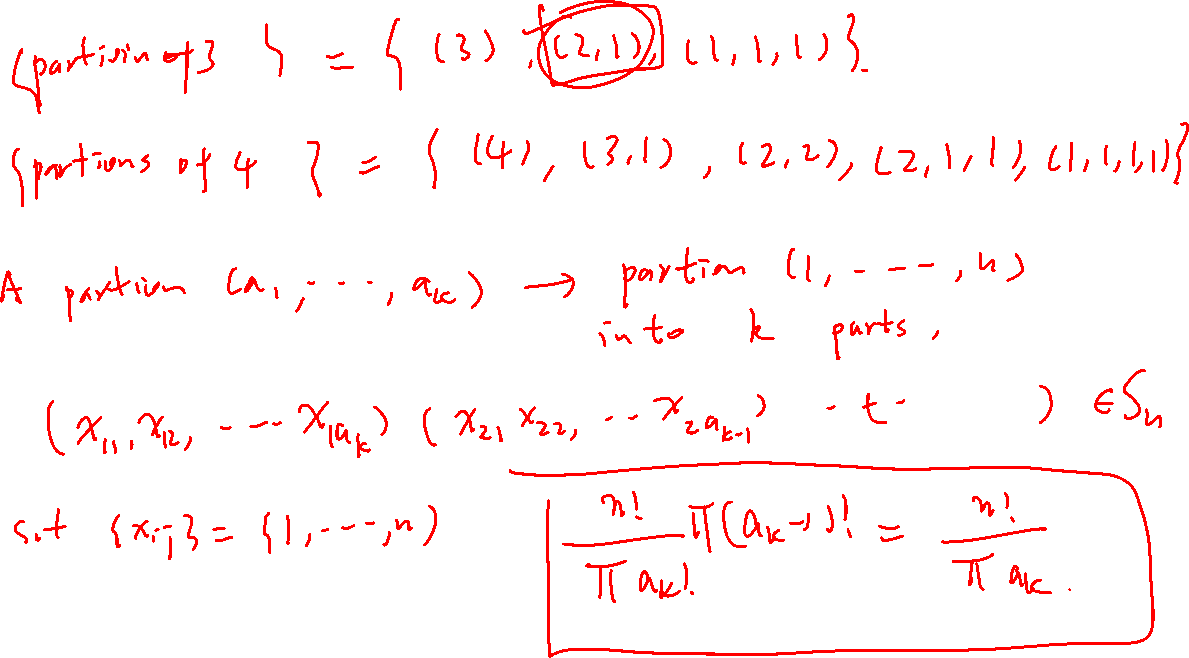 {partision of 3 } = { (3) , (2,1), (1,1,1) }.
{partions of 4 } = { (4), (3,1) , (2,2), (2,1,1), (1,1,1,1)}
A partion (a₁,..., aₖ) → partion (1, - - - -, n)
into k parts,
(x₁₁, x₁₂, - - - x₁ₐₖ) ( x₂₁ x₂₂, .. x₂ₐₖ₋₁) - t - ) ∈ Sₙ
s.t {xᵢⱼ} = {1,- - - -,n)
n!/∏ aₖ! ∏(aₖ-1)! = n!/∏ aₖ.